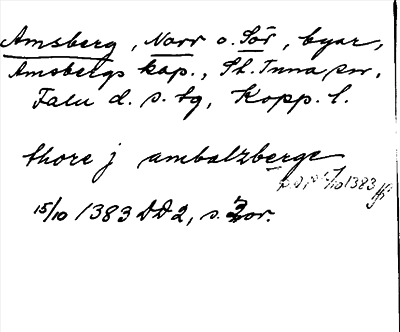 Amsberg, Norr o. Sör, byar,
Amsbergs kap., St. Tuna sn,
Falu d. s. tg, Kopp. l.
thore j ambalzberge
15/10 1383
15/10 1383 DD2, s. 2or.